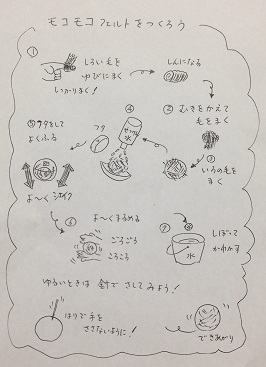 モコモコフェルトをつくろう
①
しろい毛を
ゆびにまく
しっかりまく!
しんになる
② むきをかえて
毛をまく
③ いろの毛を
まく
④
せっけん
水
⑤ フタをして
よくふる
フタ
よ〜くシェイク
⑥ よ〜くまるめる
ごろごろ
ころころ
⑦
水
⑧
しぼって
かわかす
ゆるいときは 針で さしてみよう!
はりで手を
ささないように!
できあがり